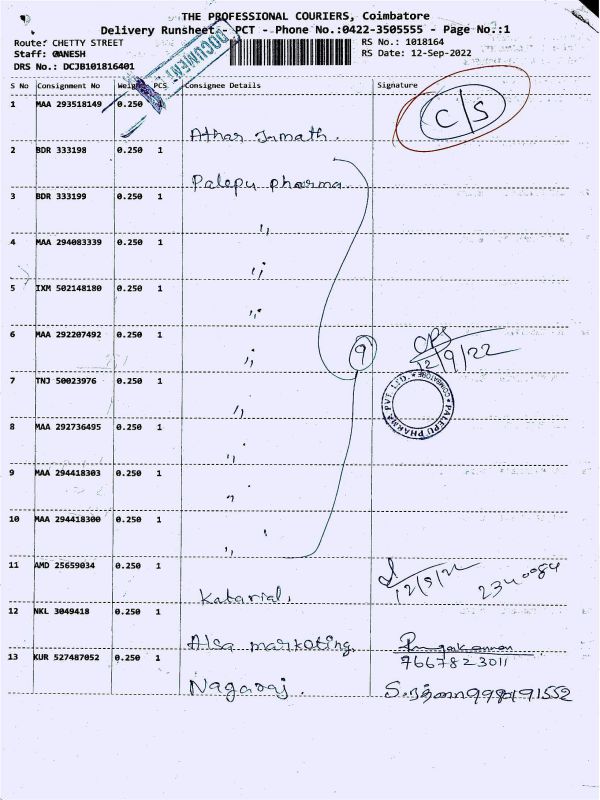 THE PROFESSIONAL COURIERS, Coimbatore
Delivery Runsheet - PCT - Phone No.:0422-3505555 - Page No.:1
Route: CHETTY STREET RS No.: 1018164
Staff: GANESH RS Date: 12-Sep-2022
DRS No.: DCJB101816401
DOCUMENT
S No Consignment No Weight PCS Consignee Details Signature
1 MAA 293518149 0.250 1 C/S
Athar
2 BDR 333198 0.250 1
Palepu pharma
3 BDR 333199 0.250 1
"
4 MAA 294083339 0.250 1
"
5 IXM 502148180 0.250 1
"
6 MAA 292207492 0.250 1
" 9 12/9/22
7 TNJ 50023976 0.250 1
" PALEPU PHARMA PVT. LTD. COIMBATORE
8 MAA 292736495 0.250 1
"
9 MAA 294418303 0.250 1
"
10 MAA 294418300 0.250 1
"
11 AMD 25659034 0.250 1
Katarial, 12/9/22 2340084
12 NKL 3049418 0.250 1
Alsa marketing,
7667823011
13 KUR 527487052 0.250 1
Nagaraj.